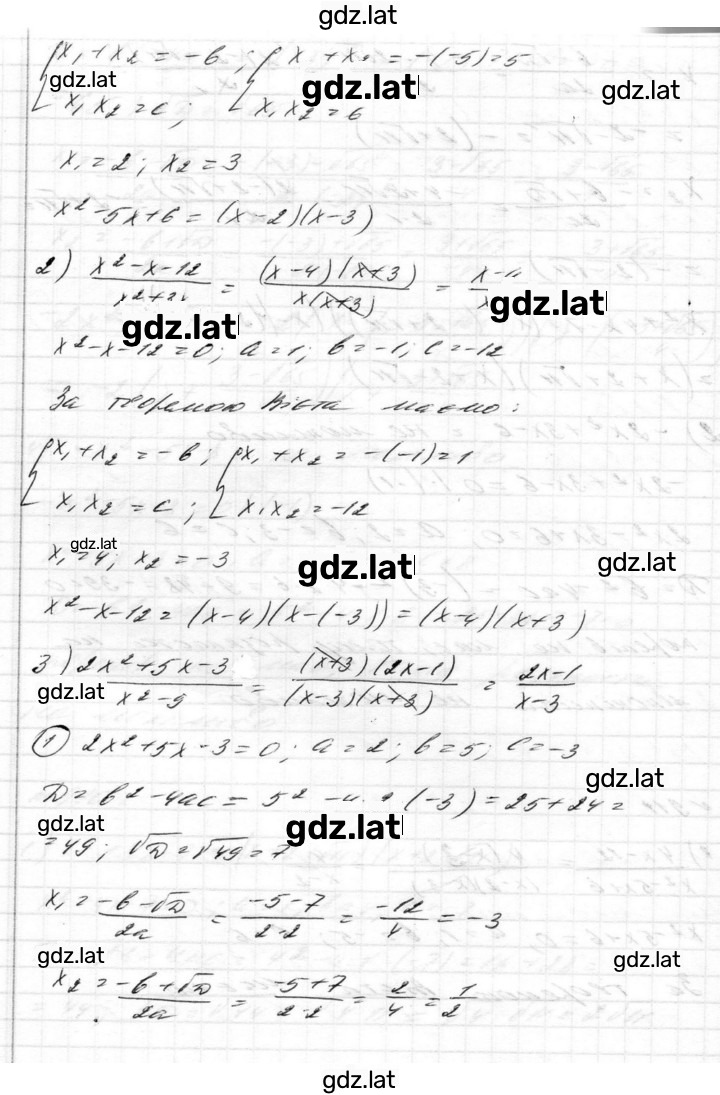 gdz.lat
{ x₁ + x₂ = -b ; { x₁ + x₂ = -(-5) = 5
gdz.lat gdz.lat gdz.lat
x₁ x₂ = c ; x₁ x₂ = 6
x₁ = 2 ; x₂ = 3
x² - 5x + 6 = (x - 2)(x - 3)
2) (x² - x - 12)/(x² + 3x) = ((x - 4)(x + 3))/(x(x + 3)) = (x - 4)/x
gdz.lat
gdz.lat
x² - x - 12 = 0 ; a = 1 ; b = -1 ; c = -12
За теоремою Вієта маємо :
{ x₁ + x₂ = -b ; { x₁ + x₂ = -(-1) = 1
x₁ x₂ = c ; x₁ x₂ = -12
gdz.lat
x₁ = 4 ; x₂ = -3
gdz.lat gdz.lat
x² - x - 12 = (x - 4)(x - (-3)) = (x - 4)(x + 3)
3) (2x² + 5x - 3)/(x² - 9) = ((x + 3)(2x - 1))/((x - 3)(x + 3)) = (2x - 1)/(x - 3)
gdz.lat
① 2x² + 5x - 3 = 0 ; a = 2 ; b = 5 ; c = -3
gdz.lat
D = b² - 4ac = 5² - 4 · (-3) = 25 + 24 =
gdz.lat gdz.lat
= 49 ; √D = √49 = 7
x₁ = (-b - √D)/2a = (-5 - 7)/(2·2) = -12/4 = -3
gdz.lat gdz.lat
x₂ = (-b + √D)/2a = (-5 + 7)/(2·2) = 2/4 = 1/2
gdz.lat